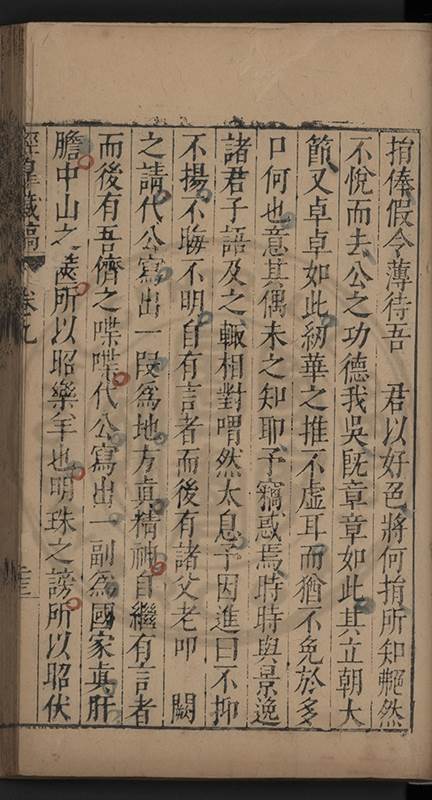 捐俸假令薄待吾　君以好色將何捐所知艴然
不悅而去公之功德我吳旣章章如此其立朝大
節又卓卓如此紛華之推不虛耳而猶不免於多
口何也意其偶未之知耶予竊惑焉時時與景逸
諸君子語及之輙相對喟然太息予因進曰不抑
不揚不晦不明自有言者而後有諸父老叩　闕
之請代公寫出一段為地方眞精神自繼有言者
而後有吾儕之喋喋代公寫出一副為國家眞肝
膽中山之篋所以昭樂羊也明珠之謗所以昭伏
涇臯藏稿　卷九